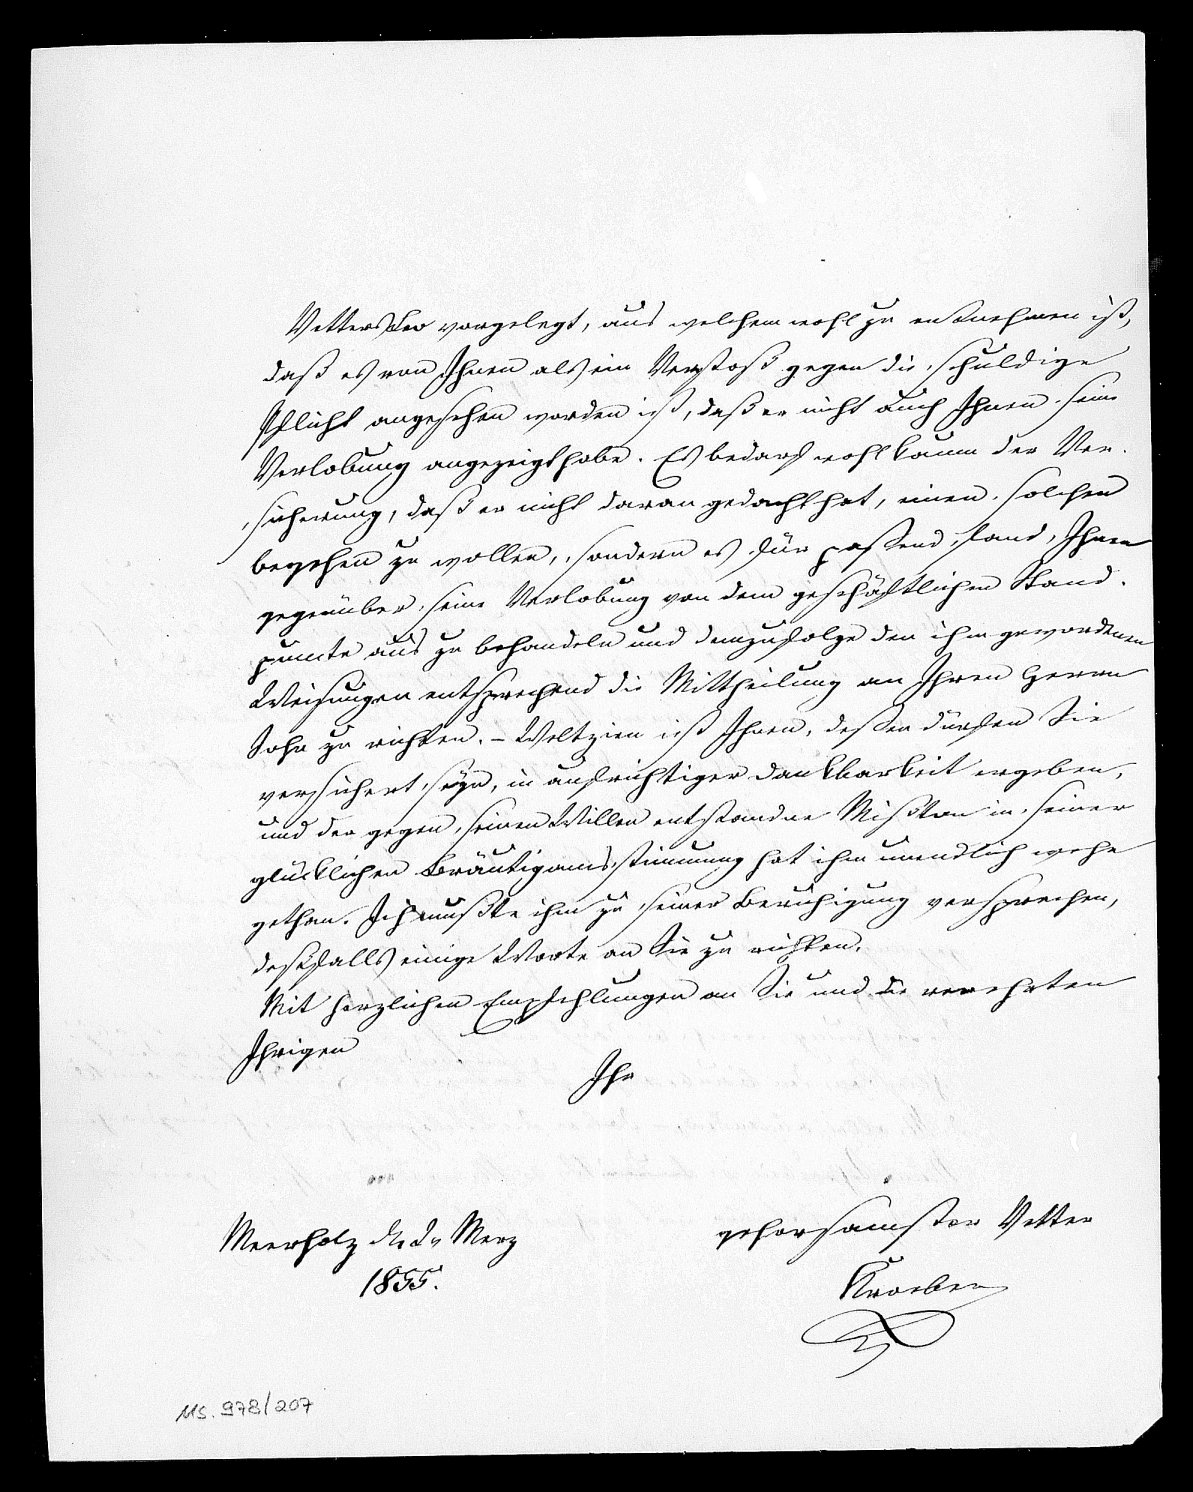 Vetters Leo vorgelegt, aus welchem wohl zu entnehmen ist,
daß es von Ihnen als ein Verstoß gegen die schuldige
Pflicht angesehen worden ist, daß er nicht auch Ihnen seine
Verlobung angezeigt habe. Es bedarf wohl kaum der Ver-
sicherung, daß er nicht daran gedacht hat, einen solchen
begehen zu wollen, sondern es für passend fand, Ihnen
gegenüber seine Verlobung von dem geschäftlichen Stand-
puncte aus zu behandeln und demzufolge den ihm gewordenen
Weisungen entsprechend die Mittheilung an Ihren Herrn
Sohn zu richten. – Weltzien ist Ihnen, dessen dürfen Sie
versichert seyn, in aufrichtiger Dankbarkeit ergeben,
und der gegen seinen Willen entstandne Mißton in seiner
glücklichen Bräutigamsstimmung hat ihm unendlich wehe
gethan. Ich mußte ihm zu seiner Beruhigung versprechen,
desfalls einige Worte an Sie zu richten.
Mit herzlichen Empfehlungen an Sie und die verehrten
Ihrigen
Ihr
gehorsamster Vetter
Kroeber
Meerholz d. 2. Merz
1855.
Ms. 978/207